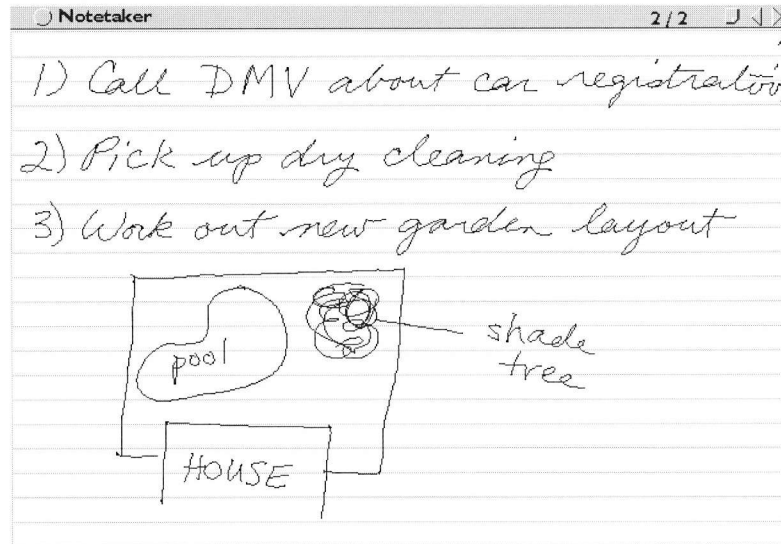 Notetaker 2/2
1) Call DMV about car registration
2) Pick up dry cleaning
3) Work out new garden layout
pool
shade
tree
HOUSE